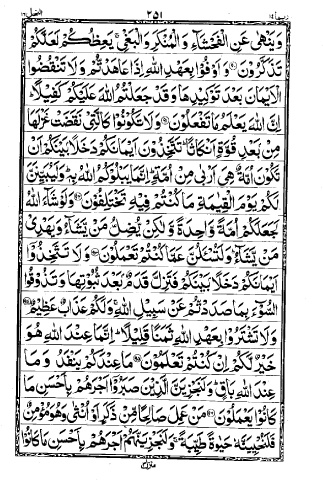 ربما ١٤ ٢٥١ النحل ١٦
وَيَنْهٰى عَنِ الْفَحْشَآءِ وَالْمُنْكَرِ وَالْبَغْيِ ۚ يَعِظُكُمْ لَعَلَّكُمْ
تَذَكَّرُوْنَ ۝ وَ اَوْفُوْا بِعَهْدِ اللّٰهِ اِذَا عَاهَدْتُّمْ وَلَا تَنْقُضُوا
الْاَيْمَانَ بَعْدَ تَوْكِيْدِهَا وَقَدْ جَعَلْتُمُ اللّٰهَ عَلَيْكُمْ كَفِيْلًا ؕ
اِنَّ اللّٰهَ يَعْلَمُ مَا تَفْعَلُوْنَ ۝ وَلَا تَكُوْنُوْا كَالَّتِيْ نَقَضَتْ غَزْلَهَا
مِنْۢ بَعْدِ قُوَّةٍ اَنْكَاثًا ؕ تَتَّخِذُوْنَ اَيْمَانَكُمْ دَخَلًۢا بَيْنَكُمْ اَنْ
تَكُوْنَ اُمَّةٌ هِيَ اَرْبٰى مِنْ اُمَّةٍ ؕ اِنَّمَا يَبْلُوْكُمُ اللّٰهُ بِهٖ ؕ وَلَيُبَيِّنَنَّ
لَكُمْ يَوْمَ الْقِيٰمَةِ مَا كُنْتُمْ فِيْهِ تَخْتَلِفُوْنَ ۝ وَلَوْ شَآءَ اللّٰهُ
لَجَعَلَكُمْ اُمَّةً وَّاحِدَةً وَّلٰكِنْ يُّضِلُّ مَنْ يَّشَآءُ وَيَهْدِيْ
مَنْ يَّشَآءُ ؕ وَلَتُسْـَٔلُنَّ عَمَّا كُنْتُمْ تَعْمَلُوْنَ ۝ وَلَا تَتَّخِذُوْۤا
اَيْمَانَكُمْ دَخَلًۢا بَيْنَكُمْ فَتَزِلَّ قَدَمٌۢ بَعْدَ ثُبُوْتِهَا وَتَذُوْقُوا
السُّوْٓءَ بِمَا صَدَدْتُّمْ عَنْ سَبِيْلِ اللّٰهِ ۚ وَلَكُمْ عَذَابٌ عَظِيْمٌ ۝
وَلَا تَشْتَرُوْا بِعَهْدِ اللّٰهِ ثَمَنًا قَلِيْلًا ؕ اِنَّمَا عِنْدَ اللّٰهِ هُوَ
خَيْرٌ لَّكُمْ اِنْ كُنْتُمْ تَعْلَمُوْنَ ۝ مَا عِنْدَكُمْ يَنْفَدُ وَمَا
عِنْدَ اللّٰهِ بَاقٍ ؕ وَلَنَجْزِيَنَّ الَّذِيْنَ صَبَرُوْۤا اَجْرَهُمْ بِاَحْسَنِ مَا
كَانُوْا يَعْمَلُوْنَ ۝ مَنْ عَمِلَ صَالِحًا مِّنْ ذَكَرٍ اَوْ اُنْثٰى وَهُوَ مُؤْمِنٌ
فَلَنُحْيِيَنَّهٗ حَيٰوةً طَيِّبَةً ۚ وَلَنَجْزِيَنَّهُمْ اَجْرَهُمْ بِاَحْسَنِ مَا كَانُوْا